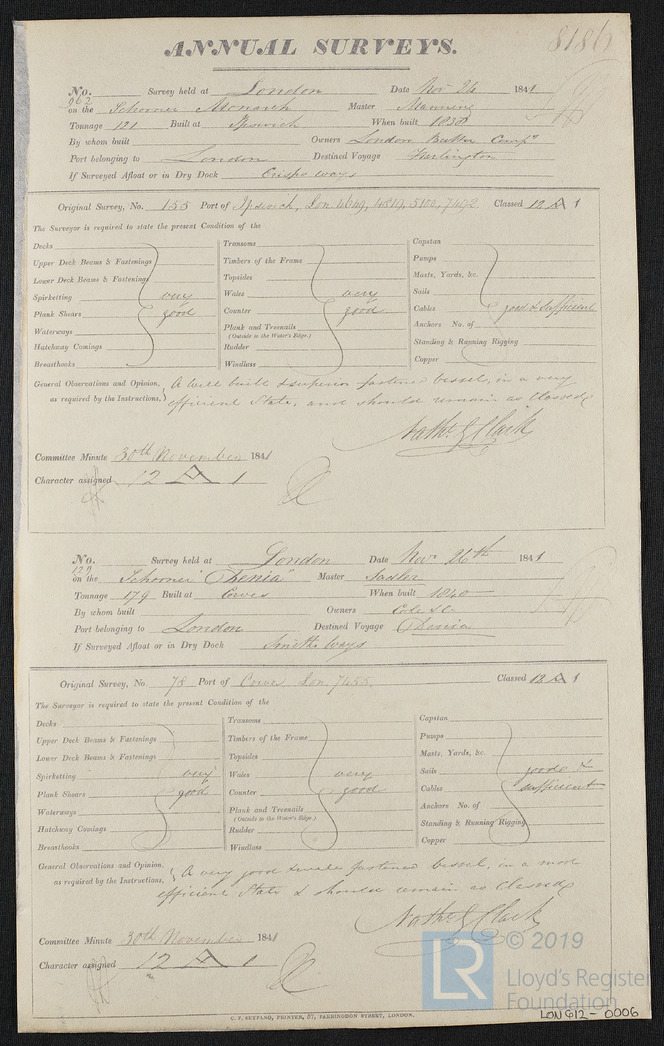 ANNUAL SURVEYS.
8186
No. 962 Survey held at London Date Nov 24 1841
on the Schooner Monarch Master Manning
Tonnage 121 Built at Ipswich When built 1838
By whom built Owners London Compy
Port belonging to London Destined Voyage Harlington
If Surveyed Afloat or in Dry Dock Crisps ways
Original Survey, No. 155 Port of Ipswich, Lon. 4649, 4819, 5102, 7492 Classed 12 A 1
The Surveyor is required to state the present Condition of the
Decks Transoms Capstan
Upper Deck Beams & Fastenings Timbers of the Frame Pumps
Lower Deck Beams & Fastenings Topsides Masts, Yards, &c.
Spirketting very Wales very Sails
Plank Shears good Counter good Cables good & sufficient
Waterways Plank and Treenails Anchors No. of
(Outside to the Water's Edge.)
Hatchway Comings Rudder Standing & Running Rigging
Breasthooks Windlass Copper
General Observations and Opinion, A well built & superior fastened vessel, in a very
as required by the Instructions. efficient State, and should remain as Classed
Nathl G Clark
Committee Minute 30th November 1841
Character assigned 12 A 1
No. 129 Survey held at London Date Nov 26th 1841
on the Schooner "Denia" Master Sadler
Tonnage 179 Built at Cowes When built 1840
By whom built Owners Cole &c
Port belonging to London Destined Voyage Denia
If Surveyed Afloat or in Dry Dock Smiths ways
Original Survey, No. 78 Port of Cowes Lon. 7455 Classed 12 A 1
The Surveyor is required to state the present Condition of the
Decks Transoms Capstan
Upper Deck Beams & Fastenings Timbers of the Frame Pumps
Lower Deck Beams & Fastenings Topsides Masts, Yards, &c.
Spirketting very Wales very Sails good &
Plank Shears good Counter good Cables sufficient
Waterways Plank and Treenails Anchors No. of
(Outside to the Water's Edge.)
Hatchway Comings Rudder Standing & Running Rigging
Breasthooks Windlass Copper
General Observations and Opinion, A very good & well fastened vessel, in a most
as required by the Instructions. efficient State & should remain as Classed
Nathl G Clark
Committee Minute 30th November 1841
Character assigned 12 A 1
C. F. SEYFANG, PRINTER, 57, FARRINGDON STREET, LONDON.
LR © 2019
Lloyd's Register
Foundation
LON 612 - 0006